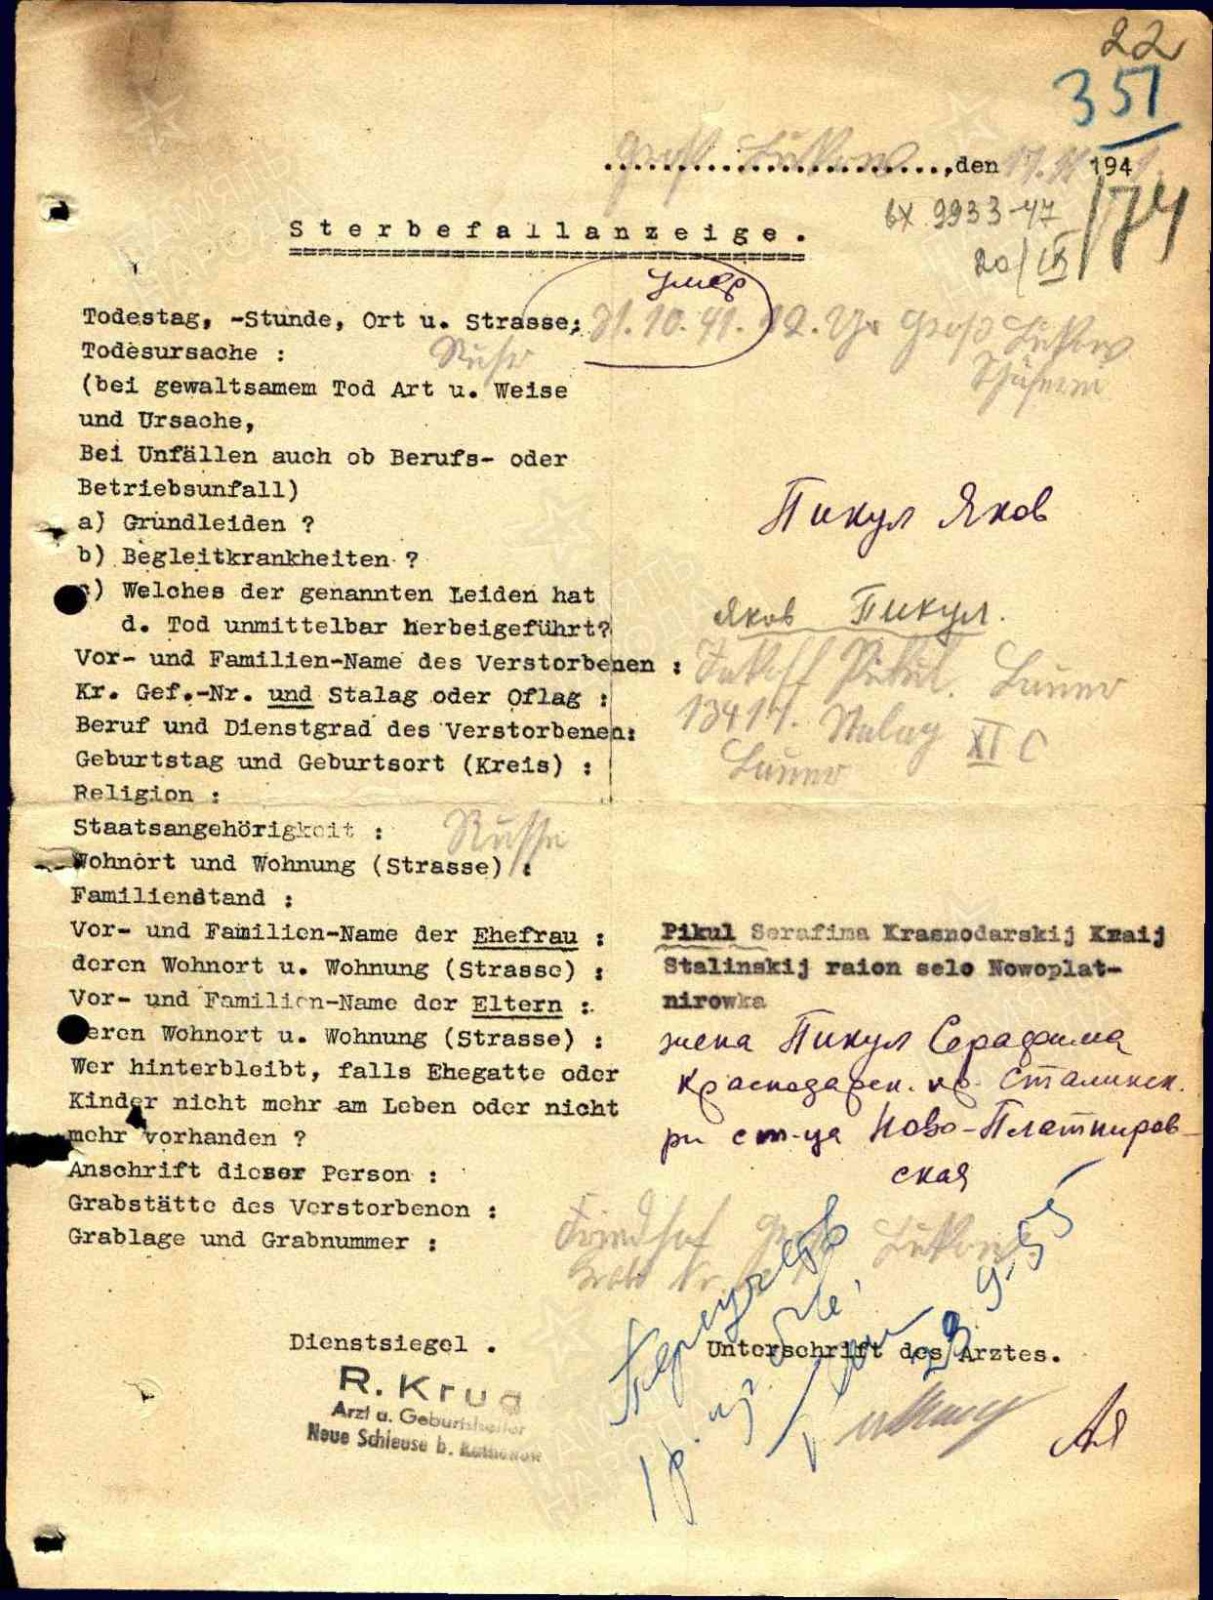 22
351
Groß Lükow, den 17. 194
вх 9933-47
174
20/IX
Sterbefallanzeige.
умер
Todestag, -Stunde, Ort u. Strasse: 31.10.41. 12. Uhr Groß Lükow
Todesursache : Ruhr
Schäferei
(bei gewaltsamem Tod Art u. Weise
und Ursache,
Bei Unfällen auch ob Berufs- oder
Betriebsunfall)
Пикул Яков
a) Grundleiden ?
b) Begleitkrankheiten ?
c) Welches der genannten Leiden hat
Яков Пикул.
d. Tod unmittelbar herbeigeführt?
Vor- und Familien-Name des Verstorbenen : Jakoff Pikul.
Kr. Gef.-Nr. und Stalag oder Oflag : 13411. Stalag XI C
Beruf und Dienstgrad des Verstorbenen: Bauer
Geburtstag und Geburtsort (Kreis) :
Religion :
Staatsangehörigkeit : Russe
Wohnort und Wohnung (Strasse) :
Familienstand :
Vor- und Familien-Name der Ehefrau : Pikul Serafima Krasnodarskij Kraij
deren Wohnort u. Wohnung (Strasse) : Stalinskij raion selo Nowoplat-
Vor- und Familien-Name der Eltern : nirowka
deren Wohnort u. Wohnung (Strasse) : жена Пикул Серафима
Wer hinterbleibt, falls Ehegatte oder Краснодарск. кр. Сталинск.
Kinder nicht mehr am Leben oder nicht
mehr vorhanden ? рн ст-ца Ново-Платниров-
Anschrift dieser Person : ская
Grabstätte des Verstorbenen : Friedhof Groß Lükow
Grablage und Grabnummer : Grab Nr
9.55
Dienstsiegel .
Unterschrift des Arztes.
R. Krug
Arzt u. Geburtshelfer
Neue Schleuse b. Rathenow